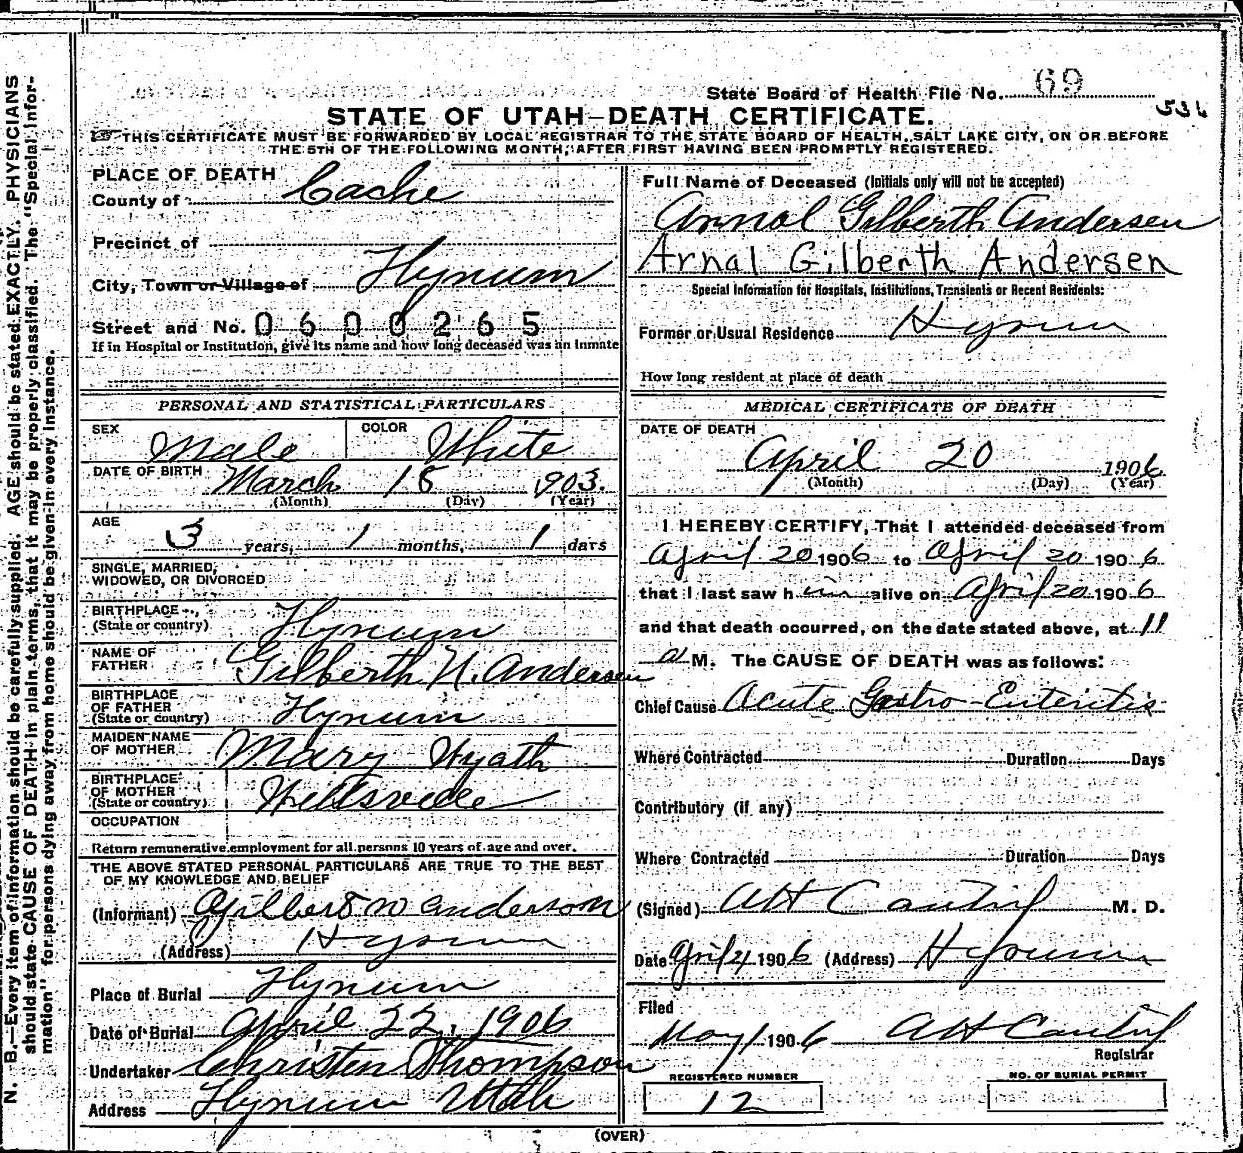 State Board of Health File No. 69
536
STATE OF UTAH-DEATH CERTIFICATE.
THIS CERTIFICATE MUST BE FORWARDED BY LOCAL REGISTRAR TO THE STATE BOARD OF HEALTH, SALT LAKE CITY, ON OR BEFORE
THE 5TH OF THE FOLLOWING MONTH, AFTER FIRST HAVING BEEN PROMPTLY REGISTERED.
N. B.—Every item of information should be carefully supplied. AGE should be stated EXACTLY. PHYSICIANS
should state CAUSE OF DEATH in plain terms, that it may be properly classified. The "Special Infor-
mation" for persons dying away from home should be given in every instance.
PLACE OF DEATH
County of Cache
Precinct of
City, Town or Village of Hyrum
Street and No. 0600265
If in Hospital or Institution, give its name and how long deceased was an inmate
PERSONAL AND STATISTICAL PARTICULARS
SEX Male COLOR White
DATE OF BIRTH March 18 1903.
(Month) (Day) (Year)
AGE 3 years, 1 months, 1 days
SINGLE, MARRIED,
WIDOWED, OR DIVORCED
BIRTHPLACE
(State or country) Hyrum
NAME OF
FATHER Gilberth N. Andersen
BIRTHPLACE
OF FATHER
(State or country) Hyrum
MAIDEN NAME
OF MOTHER Mary Wyath
BIRTHPLACE
OF MOTHER
(State or country) Wellsville
OCCUPATION
Return remunerative employment for all persons 10 years of age and over.
THE ABOVE STATED PERSONAL PARTICULARS ARE TRUE TO THE BEST
OF MY KNOWLEDGE AND BELIEF
(Informant) Gilbert N Anderson
(Address) Hyrum
Place of Burial Hyrum
Date of Burial April 22, 1906
Undertaker Christen Thompson
Address Hyrum Utah
Full Name of Deceased (Initials only will not be accepted)
Annal Gilberth Andersen
Arnal Gilberth Andersen
Special Information for Hospitals, Institutions, Transients or Recent Residents:
Former or Usual Residence Hyrum
How long resident at place of death
MEDICAL CERTIFICATE OF DEATH
DATE OF DEATH
April 20 1906
(Month) (Day) (Year)
I HEREBY CERTIFY, That I attended deceased from
April 20 1906 to April 20 1906
that I last saw him alive on April 20 1906
and that death occurred, on the date stated above, at 11
a M. The CAUSE OF DEATH was as follows:
Chief Cause Acute Gastro-Enteritis
Where Contracted Duration Days
Contributory (if any)
Where Contracted Duration Days
(Signed) M. D.
Date April 1906 (Address) Hyrum
Filed
May 1 1906
Registrar
REGISTERED NUMBER
12
NO. OF BURIAL PERMIT
(OVER)